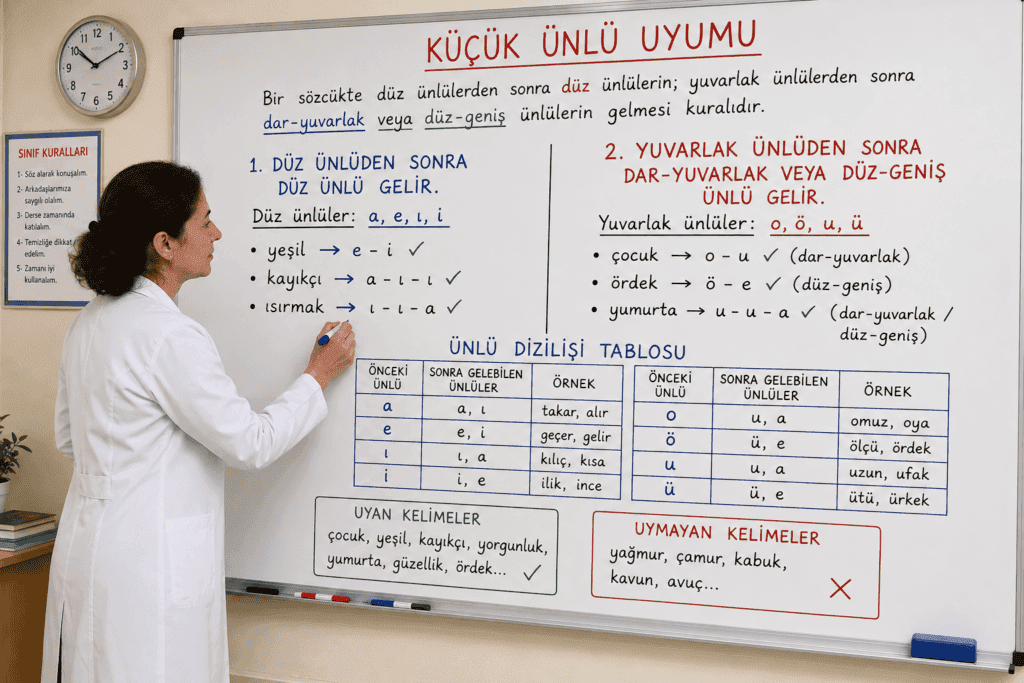 KÜÇÜK ÜNLÜ UYUMU
Bir sözcükte düz ünlülerden sonra düz ünlülerin; yuvarlak ünlülerden sonra
dar-yuvarlak veya düz-geniş ünlülerin gelmesi kuralıdır.
12
1
2
3
4
5
6
7
8
9
10
11
SINIF KURALLARI
1- Söz alarak konuşalım.
2- Arkadaşlarımıza
saygılı olalım.
3- Derse zamanında
katılalım.
4- Temizliğe dikkat
edelim.
5- Zamanı iyi
kullanalım.
1. DÜZ ÜNLÜDEN SONRA
DÜZ ÜNLÜ GELİR.
Düz ünlüler: a, e, ı, i
• yeşil → e - i ✓
• kayıkçı → a - ı - ı ✓
• ısırmak → ı - ı - a ✓
2. YUVARLAK ÜNLÜDEN SONRA
DAR-YUVARLAK VEYA DÜZ-GENİŞ
ÜNLÜ GELİR.
Yuvarlak ünlüler: o, ö, u, ü
• çocuk → o - u ✓ (dar-yuvarlak)
• ördek → ö - e ✓ (düz-geniş)
• yumurta → u - u - a ✓ (dar-yuvarlak /
düz-geniş)
ÜNLÜ DİZİLİŞİ TABLOSU
ÖNCEKİ ÜNLÜ SONRA GELEBİLEN ÜNLÜLER ÖRNEK
a a, ı takar, alır
e e, i geçer, gelir
ı ı, a kılıç, kısa
i i, e ilik, ince
ÖNCEKİ ÜNLÜ SONRA GELEBİLEN ÜNLÜLER ÖRNEK
o u, a omuz, oya
ö ü, e ölçü, ördek
u u, a uzun, ufak
ü ü, e ütü, ürkek
UYAN KELİMELER
çocuk, yeşil, kayıkçı, yorgunluk,
yumurta, güzellik, ördek... ✓
UYMAYAN KELİMELER
yağmur, çamur, kabuk,
kavun, avuç... ✗